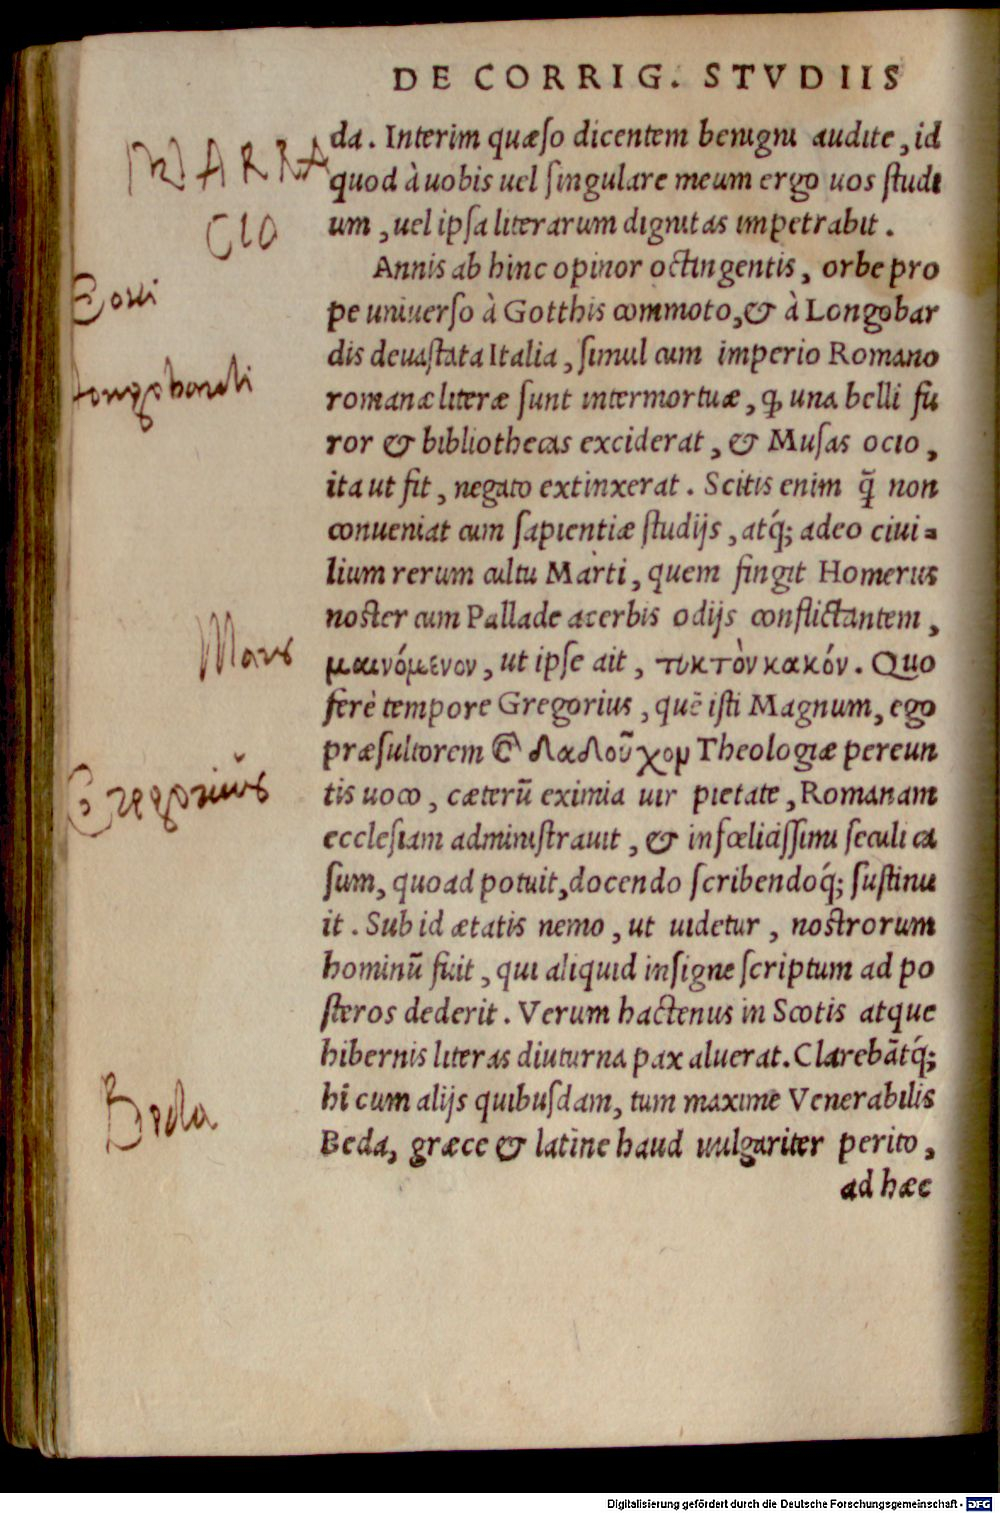 DE CORRIG. STVDIIS
da. Interim quæſo dicentem benigni audite, id
quod à uobis uel ſingulare meum ergo uos ſtudi
um, uel ipſa literarum dignitas impetrabit.
Annis ab hinc opinor octingentis, orbe pro
pe uniuerſo à Gotthis commoto, & à Longobar
dis deuaſtata Italia, ſimul cum imperio Romano
romanæ literæ ſunt intermortuæ, ꝙ una belli fu
ror & bibliothecas exciderat, & Muſas ocio,
ita ut fit, negato extinxerat. Scitis enim q̃ non
conueniat cum ſapientiæ ſtudijs, atq́; adeo ciui-
lium rerum cultu Marti, quem fingit Homerus
noſter cum Pallade acerbis odijs conflictantem,
μαινόμενον, ut ipſe ait, τυκτὸν κακόν. Quo
ferè tempore Gregorius, quē iſti Magnum, ego
præſultorem & δαδοῦχον Theologiæ pereun
tis uoco, cæterū eximia uir pietate, Romanam
eccleſiam adminiſtrauit, & infœliciſſimi ſeculi ca
ſum, quoad potuit, docendo ſcribendoq́; ſuſtinu
it. Sub id ætatis nemo, ut uidetur, noſtrorum
hominū fuit, qui aliquid inſigne ſcriptum ad po
ſteros dederit. Verum hactenus in Scotis atque
hibernis literas diuturna pax aluerat. Clarebātq́;
hi cum alijs quibuſdam, tum maxime Venerabilis
Beda, græce & latine haud uulgariter perito,
ad hæc
NARRA
CIO
Gotti
Longobardi
Mars
Gregorius
Beda
Digitalisierung gefördert durch die Deutsche Forschungsgemeinschaft - DFG